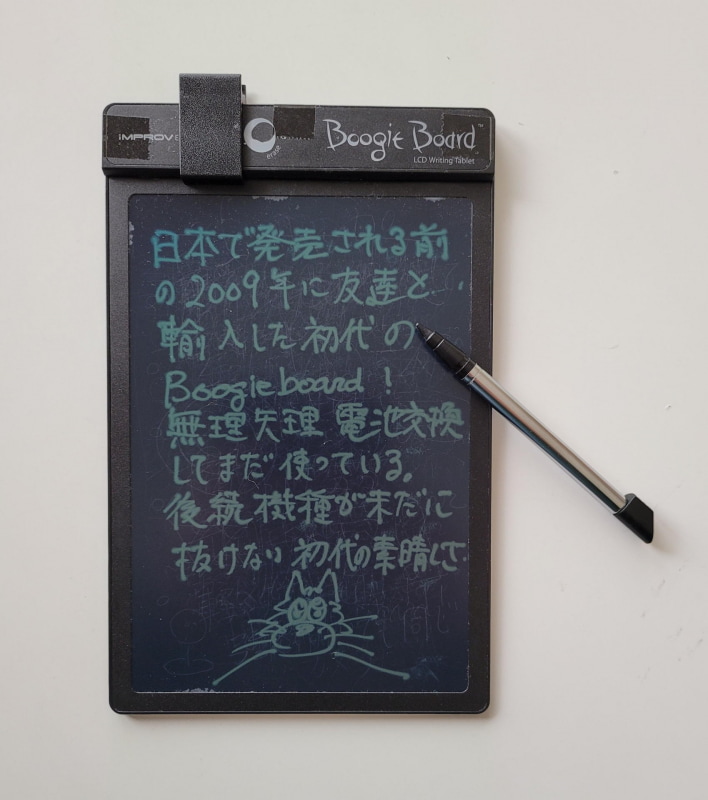 iMPROV
erase
Boogie Board™
LCD Writing Tablet
日本で発売される前
の2009年に友達と
輸入した初代の
Boogieboard!
無理矢理電池交換
してまだ使っている。
後続機種が未だに
抜けない初代の素晴しさ